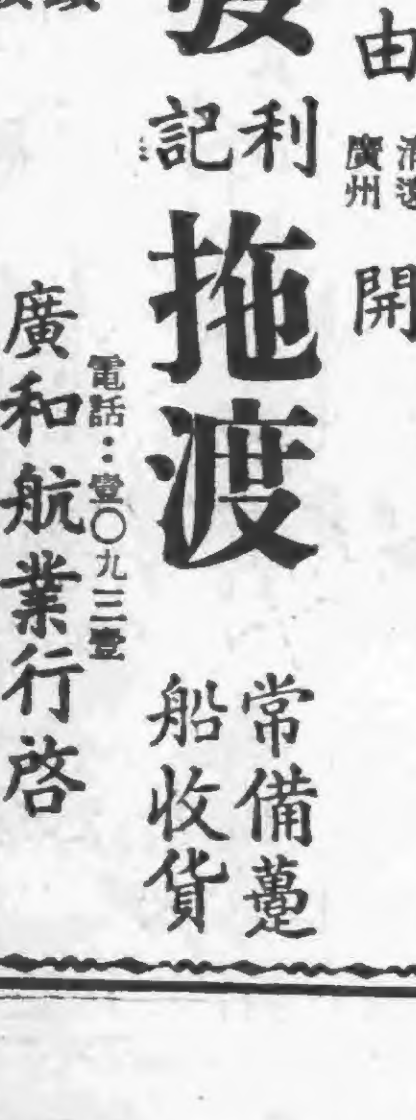 由
清遠
廣州
開
利記
拖渡
常備躉
船收貨
電話：壹〇九三壹
廣和航業行啓